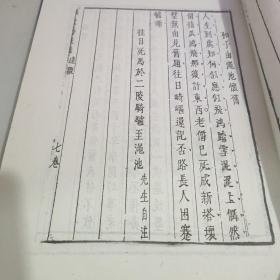 和子由澠池懷舊
人生到處知何似應似飛鴻踏雪泥泥上偶然
留指爪鴻飛那復計東西老僧已死成新塔壞
壁無由見舊題往日崎嶇還記否路長人困蹇
驢嘶
往日死馬於二陵騎驢至澠池 先生自注
七卷